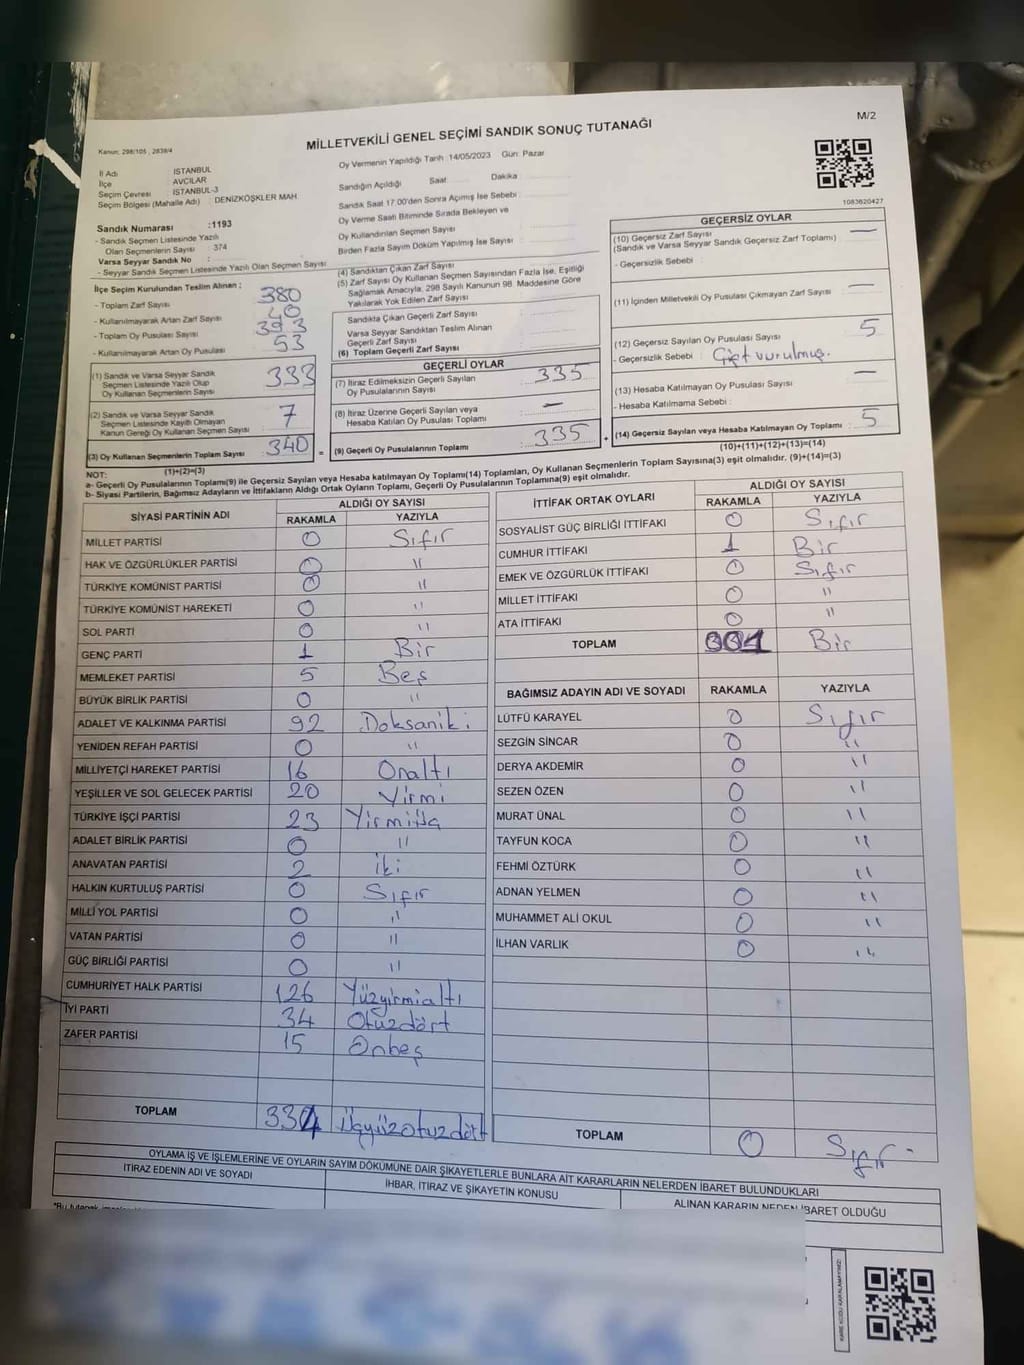 M/2
MİLLETVEKİLİ GENEL SEÇİMİ SANDIK SONUÇ TUTANAĞI
Kanun: 298/105 , 2839/4
Oy Vermenin Yapıldığı Tarih :14/05/2023 Gün: Pazar
İl Adı : İSTANBUL
İlçe : AVCILAR
Seçim Çevresi : İSTANBUL-3
Seçim Bölgesi (Mahalle Adı) : DENİZKÖŞKLER MAH
Sandığın Açıldığı Saat Dakika
Sandık Saat 17.00'den Sonra Açılmış İse Sebebi
Oy Verme Saati Bitiminde Sırada Bekleyen ve
Oy Kullandırılan Seçmen Sayısı
Birden Fazla Sayım Döküm Yapılmış İse Sayısı
1083620427
Sandık Numarası :1193
- Sandık Seçmen Listesinde Yazılı
Olan Seçmenlerin Sayısı : 374
Varsa Seyyar Sandık No :
- Seyyar Sandık Seçmen Listesinde Yazılı Olan Seçmen Sayısı :
İlçe Seçim Kurulundan Teslim Alınan :
- Toplam Zarf Sayısı : 380
- Kullanılmayarak Artan Zarf Sayısı : 40
- Toplam Oy Pusulası Sayısı : 393
- Kullanılmayarak Artan Oy Pusulası : 53
(1) Sandık ve Varsa Seyyar Sandık
Seçmen Listesinde Yazılı Olup
Oy Kullanan Seçmenlerin Sayısı : 333
(2) Sandık ve Varsa Seyyar Sandık
Seçmen Listesinde Kayıtlı Olmayan
Kanun Gereği Oy Kullanan Seçmen Sayısı : 7
(3) Oy Kullanan Seçmenlerin Toplam Sayısı : 340
(1)+(2)=(3)
(4) Sandıktan Çıkan Zarf Sayısı
(5) Zarf Sayısı Oy Kullanan Seçmen Sayısından Fazla İse, Eşitliği
Sağlamak Amacıyla, 298 Sayılı Kanunun 98. Maddesine Göre
Yakılarak Yok Edilen Zarf Sayısı
Sandıkta Çıkan Geçerli Zarf Sayısı
Varsa Seyyar Sandıktan Teslim Alınan
Geçerli Zarf Sayısı
(6) Toplam Geçerli Zarf Sayısı
GEÇERLİ OYLAR
(7) İtiraz Edilmeksizin Geçerli Sayılan
Oy Pusulalarının Sayısı : 335
(8) İtiraz Üzerine Geçerli Sayılan veya
Hesaba Katılan Oy Pusulası Toplamı : —
= (9) Geçerli Oy Pusulalarının Toplamı : 335 +
GEÇERSİZ OYLAR
(10) Geçersiz Zarf Sayısı
(Sandık ve Varsa Seyyar Sandık Geçersiz Zarf Toplamı) : —
- Geçersizlik Sebebi :
(11) İçinden Milletvekili Oy Pusulası Çıkmayan Zarf Sayısı : —
(12) Geçersiz Sayılan Oy Pusulası Sayısı : 5
- Geçersizlik Sebebi : Çift vurulmuş.
(13) Hesaba Katılmayan Oy Pusulası Sayısı : —
- Hesaba Katılmama Sebebi :
(14) Geçersiz Sayılan veya Hesaba Katılmayan Oy Toplamı : 5
(10)+(11)+(12)+(13)=(14)
NOT:
a- Geçerli Oy Pusulalarının Toplamı(9) ile Geçersiz Sayılan veya Hesaba Katılmayan Oy Toplamı(14) Toplamları, Oy Kullanan Seçmenlerin Toplam Sayısına(3) eşit olmalıdır. (9)+(14)=(3)
b- Siyasi Partilerin, Bağımsız Adayların ve İttifakların Aldığı Ortak Oyların Toplamı, Geçerli Oy Pusulalarının Toplamına(9) eşit olmalıdır.
SİYASİ PARTİNİN ADI ALDIĞI OY SAYISI
RAKAMLA YAZIYLA
MİLLET PARTİSİ 0 Sıfır
HAK VE ÖZGÜRLÜKLER PARTİSİ 0 "
TÜRKİYE KOMÜNİST PARTİSİ 0 "
TÜRKİYE KOMÜNİST HAREKETİ 0 "
SOL PARTİ 0 "
GENÇ PARTİ 1 Bir
MEMLEKET PARTİSİ 5 Beş
BÜYÜK BİRLİK PARTİSİ 0 "
ADALET VE KALKINMA PARTİSİ 92 Doksaniki
YENİDEN REFAH PARTİSİ 0 "
MİLLİYETÇİ HAREKET PARTİSİ 16 Onaltı
YEŞİLLER VE SOL GELECEK PARTİSİ 20 Yirmi
TÜRKİYE İŞÇİ PARTİSİ 23 Yirmiüç
ADALET BİRLİK PARTİSİ 0 "
ANAVATAN PARTİSİ 2 İki
HALKIN KURTULUŞ PARTİSİ 0 Sıfır
MİLLİ YOL PARTİSİ 0 "
VATAN PARTİSİ 0 "
GÜÇ BİRLİĞİ PARTİSİ 0 "
CUMHURİYET HALK PARTİSİ 126 Yüzyirmialtı
İYİ PARTİ 34 Otuzdört
ZAFER PARTİSİ 15 Onbeş
TOPLAM 334 Üçyüzotuzdört
İTTİFAK ORTAK OYLARI ALDIĞI OY SAYISI
RAKAMLA YAZIYLA
SOSYALİST GÜÇ BİRLİĞİ İTTİFAKI 0 Sıfır
CUMHUR İTTİFAKI 1 Bir
EMEK VE ÖZGÜRLÜK İTTİFAKI 0 Sıfır
MİLLET İTTİFAKI 0 "
ATA İTTİFAKI 0 "
TOPLAM 001 Bir
BAĞIMSIZ ADAYIN ADI VE SOYADI RAKAMLA YAZIYLA
LÜTFÜ KARAYEL 0 Sıfır
SEZGİN SİNCAR 0 "
DERYA AKDEMİR 0 "
SEZEN ÖZEN 0 "
MURAT ÜNAL 0 "
TAYFUN KOCA 0 "
FEHMİ ÖZTÜRK 0 "
ADNAN YELMEN 0 "
MUHAMMET ALİ OKUL 0 "
İLHAN VARLIK 0 "
TOPLAM 0 Sıfır
OYLAMA İŞ VE İŞLEMLERİNE VE OYLARIN SAYIM DÖKÜMÜNE DAİR ŞİKAYETLERLE BUNLARA AİT KARARLARIN NELERDEN İBARET BULUNDUKLARI
İTİRAZ EDENİN ADI VE SOYADI İHBAR, İTİRAZ VE ŞİKAYETİN KONUSU ALINAN KARARIN NEDEN İBARET OLDUĞU
"Bu tutanak
KARE KODU KARALAMAYINIZ!